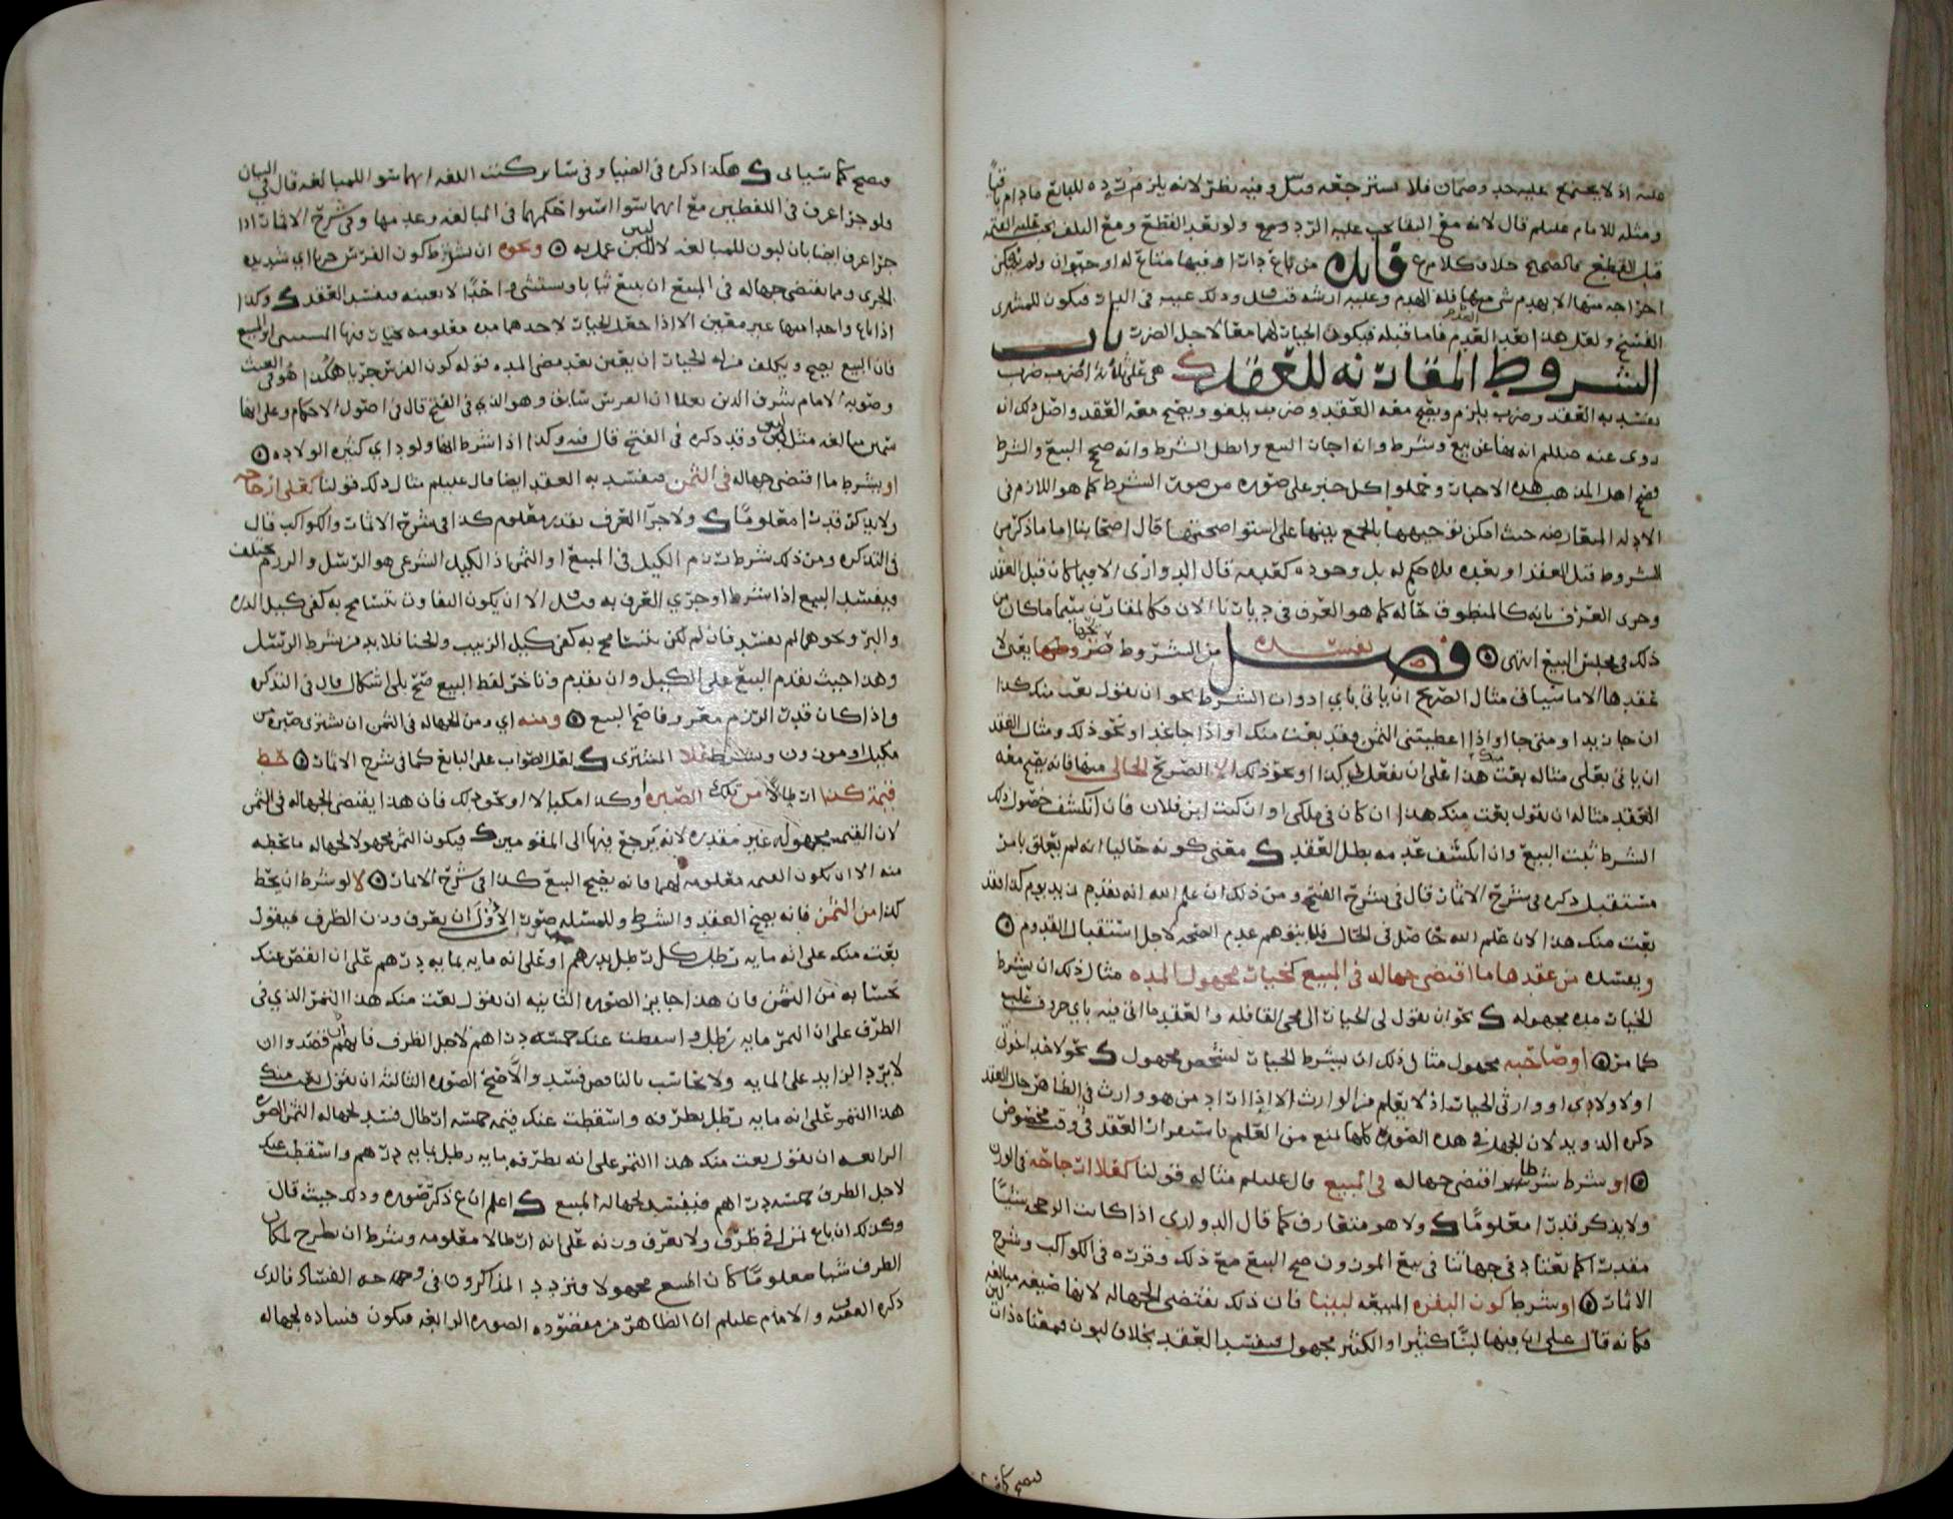 عليه اذ لا يجتمع عليه حد وضمان فلا يسترجعه وفيه نظر لانه يلزم رده للبائع مادام باقيا
ومثله للامام عليلم قال لانه مع البقا يجب عليه الرد ولو بعد القطع ومع التلف يجب عليه القيمه
قبل القطع فالصحيح خلاف كلام فائده من باع دارا وفيها متاع له او حيوان ولم يمكن
اخراجه منها الا بهدم شي منها فله الهدم وعليه ارشه وذلك عيب في البيت فيكون للمشتري
الفسخ ولعل هذا بعد القدم فاما قبله فيكون الخيار لهما معا لاجل الضرر باب
الشروط المقارنه للعقد هي على ثلاثه اضرب ضرب
يفسد به العقد وضرب يلزم ويصح معه العقد وضرب يلغو ويصح معه العقد واصل ذلك انه
روى عنه صللم انه نهى عن بيع وشرط وانه اجاز البيع وابطل الشرط وانه صحح البيع والشرط
اهل المذهب هذه الاخبار وحملوا كل خبر على صوره من صور الشرط كما هو اللازم في
الادله المتعارضه حيث امكن توجيهها بالجمع بينها على استوا صحتها قال اصحابنا اما ما ذكر من
الشروط قبل العقد او بعده فلا حكم له بل وجوده كعدمه قال الدواري الا فيما كان قبل العقد
وجرى العرف بانه كالمنطوق حاله كما هو العرف في ديارنا الان فكالمقارن سيما ما كان من
ذلك في مجلس البيع انتهى فصل يفسده من الشروط صريحها يعني لا
بعقدها الا ما سياتي مثال الصريح ان ياتي باي ادوات الشرط نحو ان يقول بعت منك كذا
ان جا زيد او متى جا او اذا اعطيتني الثمن فقد بعت منك او اذا جا غد او نحو ذلك ومثال العقد
ان ياتي بعلى مثاله بعت منك هذا على ان تفعل لي كذا او نحو ذلك الا الصريح الحالي منها فانه يصح معه
العقد مثاله ان يقول بعت منك هذا ان كان في ملكي او ان كنت ابن فلان فان انكشف حصول ذلك
الشرط ثبت البيع وان انكشف عدمه بطل العقد معنى كونه حاليا انه لم يعلق بامر
مستقبل ذكره في شرح الاثمار قال في شرح الفتح ومن ذلك ان علم الله انه يقدم زيد يوم كذا فقد
بعت منك هذا لان علم الله حاصل في الحال فلا يتوهم عدم الصحه لاجل استقبال القدوم
ويفسده من عقدها ما اقتضى جهاله في المبيع كخيار مجهول المده مثال ذلك ان يشرط
الخيار مده مجهوله نحو ان يقول لي الخيار الى مجي القافله والعقد ما اتى فيه باي حرف
كما مر او صاحبه مجهول مثال ذلك ان يشرط الخيار لشخص مجهول نحو لاحد اخوتي
او لاولادي او وارثي الخيار اذ لا يعلم من الوارث الا اذا اراد من هو وارث في الظاهر حال العقد
ذكره الدويد لان الجهل في هذه الصوره كلها يمنع من العلم باستمرار العقد في وقت مخصوص
او شرط شرطا اقتضى جهاله في المبيع قال عليلم مثاله قولنا كعلى ارجاحه في الوزن
ولا يذكر قدرا معلوما ولا هو متعارف كما قال الدواري اذا كانت الرجحه شيئا
مقدرا كما يعتاد في جهاتنا في بيع الموزون صح البيع مع ذلك وقرره في الكواكب وشرح
الاثمار او شرط كون البقره المبيعه لبينا فان ذلك يقتضي الجهاله لانها صيغه مبالغه
فكانه قال على ان فيها لبنا كثيرا والكثير مجهول فيفسد العقد بخلاف لبون فمعناه ذات لبن
فيصح كما سياتي هكذا ذكره في الضيا وفي سائر كتب اللغه انهما سوا للمبالغه قال في البيان
ولو جرا عرف في اللفظين مع انهما سوا استوا حكمهما في المبالغه وعدمها وفي شرح الاثمار اذا
جرا عرف ايضا بان لبون للمبالغه لا لبين عمل به ونحوه ان يشترط كون الفرس جريا اي شديد
الجري ومما يقتضي جهاله في المبيع ان يبيع ثيابا ويستثني واحدا لا بعينه فيفسد العقد وكذا
اذا باع واحدا منها غير معين الا اذا جعل الخيار لاحدهما مده معلومه يختار فيها المستثنى او المبيع
فان البيع يصح ويكلف من له الخيار ان يعين بعد مضي المده قوله كون الفرس جريا هكذا هو في الغيث
وصوبه الامام شرف الدين بعد ان الفرس سابق وهو الذي في الفتح قال في اصول الاحكام وعلى انها
سمين مبالغه مثل لبين وقد ذكره في الفتح قال فيه وكذا اذا شرط انها ولود اي كثيره الولاده
او بشرط ما اقتضى جهاله في الثمن فيفسد به العقد ايضا قال عليلم مثال ذلك قولنا كعلى ارجاح
ولا يذكر قدرا معلوما ولا جرا العرف بقدر معلوم كذا في شرح الاثمار والكواكب قال
في التذكره ومن ذلك شرط رزم الكيل في المبيع او الثمن اذ الكيل الشرعي هو الرسل والرزم مختلف
فيفسد البيع اذا شرط او جرى العرف به الا ان يكون التفاوت يتسامح به كفي كيل الذره
والبر ونحوهما لم يفسد فان لم يكن يتسامح به كفي كيل الزبيب والحنا فلا بد من شرط الرسل
وهذا حيث تقدم البيع على الكيل وان تقدم وتاخر لفظ البيع صح بلى اشكال قال في التذكره
واذا كان قدر الرزم معروفا صح البيع ومنه اي ومن الجهاله في الثمن ان يشترى صبره من
مكيل او موزون وبشرط على المشتري لعل الصواب على البائع كما في شرح الاثمار حط
قيمة كذا ارطالا من تلك الصبره وكذا مكيالا او نحو ذلك فان هذا يقتضي الجهاله في الثمن
لان القيمه مجهوله غير مقدره لانه يرجع فيها الى المقومين فيكون الثمن مجهولا لجهاله ما يحطه
منه الا ان تكون القيمه معلومه لهما فانه يصح البيع كذا في شرح الاثمار لا لو شرط ان يحط
كذا من الثمن فانه يصح العقد والشرط وللمسله صور الاولى ان يعرف وزن الظرف فيقول
بعت منك على انه مايه رطل كل رطل بدرهم او على انه مايه بمايه درهم على ان انقص عنك
بحسابه من الثمن فان هذا جايز الصوره الثانيه ان يقول بعت منك هذا التمر الذي في
الظرف على ان التمر مايه رطل واسقطنا عنك خمسه دراهم لاجل الظرف فان قصدوا ان
لا يرد الزايد على المايه ولا يحاسب بالناقص فسد والا صح الصوره الثالثه ان يقول بعت منك
هذا التمر على انه مايه رطل بظرفه واسقطت عنك قيمه خمسه ارطال فسد لجهاله الثمن الصوره
الرابعه ان يقول بعت منك هذا التمر على انه بظرفه مايه رطل بمايه درهم واسقطت عنك
لاجل الظرف خمسه دراهم فيفسد لجهاله المبيع اعلم ان ع ذكر صوره وذلك حيث قال
وكذلك ان باع تمرا في ظرف ولا يعرف وزنه على انه ارطالا معلومه وشرط ان يطرح لمكان
الظرف شيا معلوما كان المبيع مجهولا وتردد المذاكرون في وجه الفساد فالذي
ذكره الفقيه والامام عليلم ان الظاهر من مقصوده الصوره الرابعه فيكون فساده لجهاله
فيصح كما